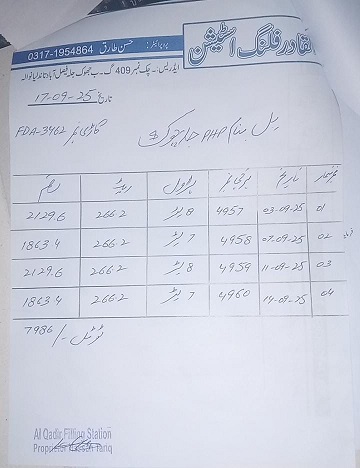 القادر فلنگ اسٹیشن
پروپرائٹر: حسن طارق 0317-1954864
ایڈریس۔ چک نمبر 409 گ۔ب جھوک جلے فیصل آباد تاندلیانوالہ
تاریخ 17-09-25
گاڑی نمبر FDA-3462
بل بنام PHP
نمبر شمار تاریخ پرچی نمبر پٹرول ریٹ رقم
01 03-09-25 4957 8 لیٹر 266.2 2129.6
02 07-09-25 4958 7 لیٹر 266.2 1863.4
03 11-09-25 4959 8 لیٹر 266.2 2129.6
04 14-09-25 4960 7 لیٹر 266.2 1863.4
ٹوٹل 7986/-
Al Qadir Filling Station
Proprietor Hassan Tariq